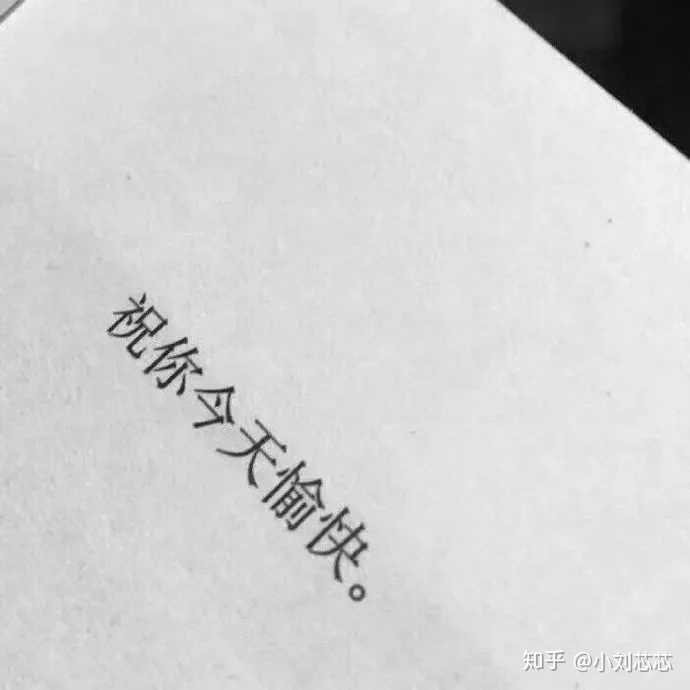 祝你今天愉快。
知乎 @小刘芯芯